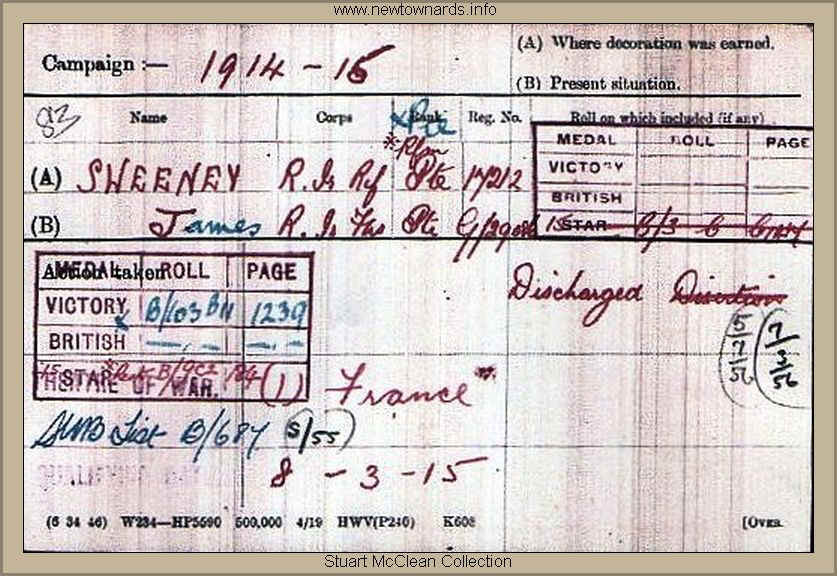 www.newtownards.info
Campaign :— 1914-15
(A) Where decoration was earned.
(B) Present situation.
Name Corps Rank Reg. No. Roll on which included (if any)
Pte
*Rfm
(A) SWEENEY R. Ir Rif Pte 17212
(B) James R. Ir Fus Pte
MEDAL ROLL PAGE
VICTORY
BRITISH
15 STAR B/3
Action taken
MEDAL ROLL PAGE
VICTORY B/103 B11 1239
BRITISH —"— —"—
STAR
Discharged
5/7/56
7/3/56
THEATRE OF WAR. (1) France
SWB List B/687 (S/55)
QUALIFYING DATE
8 - 3 - 15
(6 34 46) W234—HP5590 500,000 4/19 HWV(P240) K608 [OVER.
Stuart McClean Collection